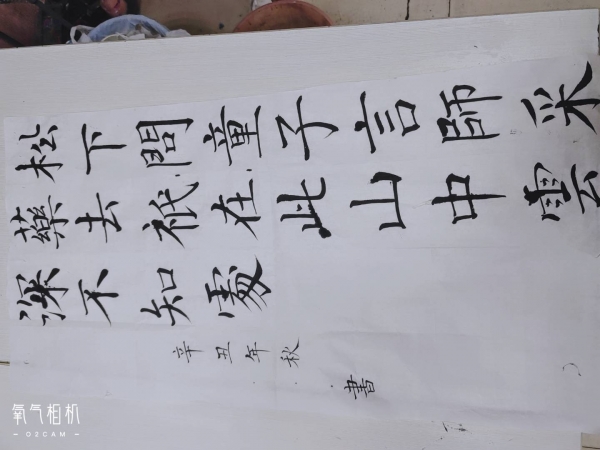 松下問童子言師采
藥去祇在此山中雲
深不知處
辛丑年秋
書
氧气相机
O2CAM